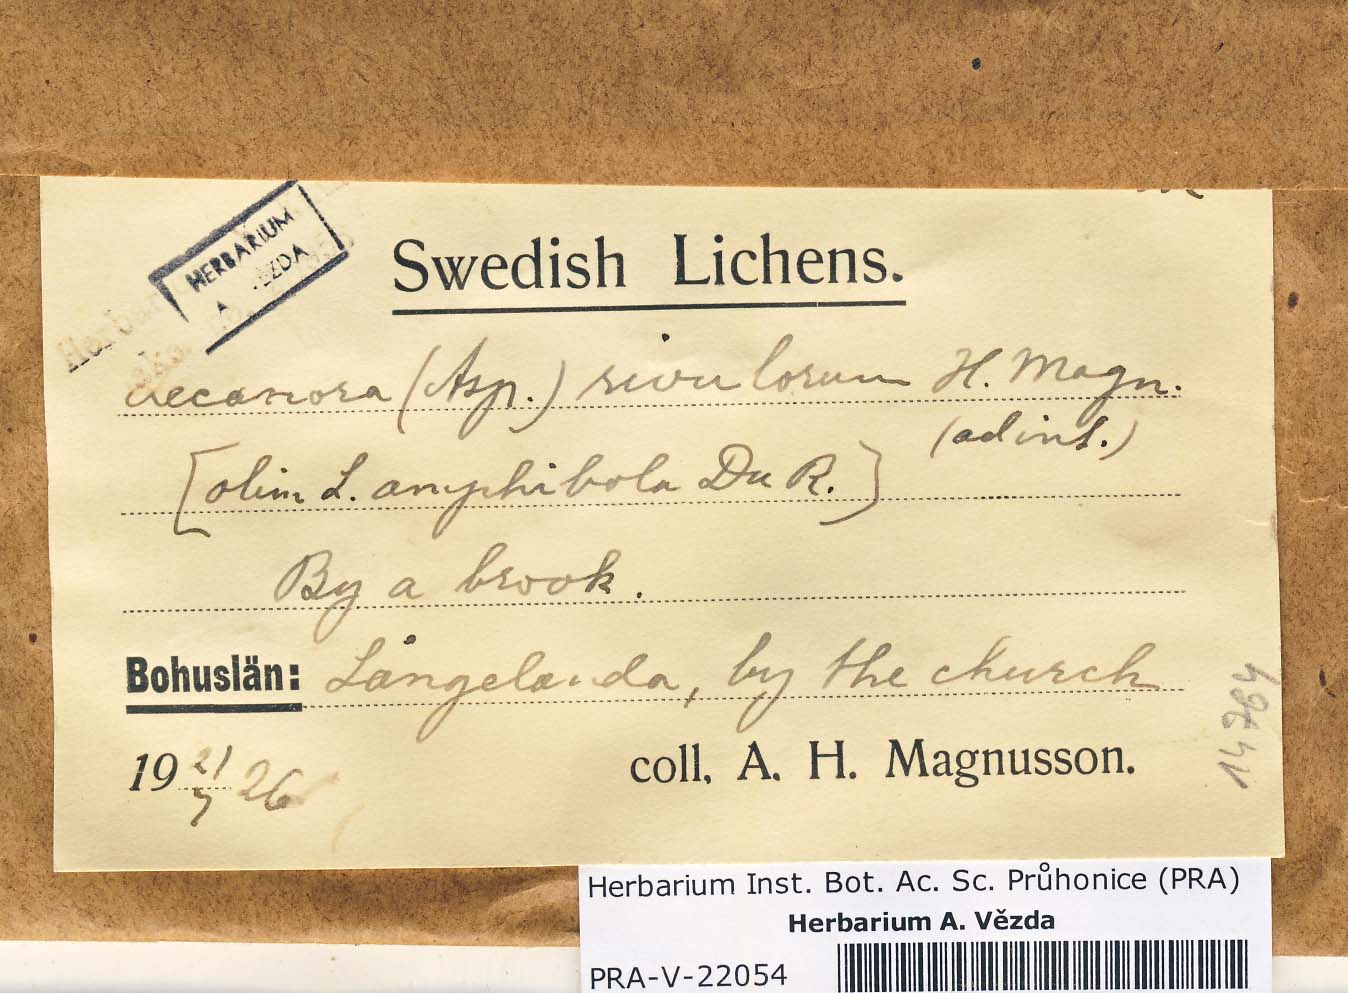 HERBARIUM
A. VĚZDA
Swedish Lichens.
Lecanora (Asp.) rivulorum H. Magn.
(ad int.)
[olim L. amphibola Du R.]
By a brook.
Bohuslän: Långelanda, by the church
19 21/7 26
coll. A. H. Magnusson.
14764
Herbarium Inst. Bot. Ac. Sc. Průhonice (PRA)
Herbarium A. Vězda
PRA-V-22054